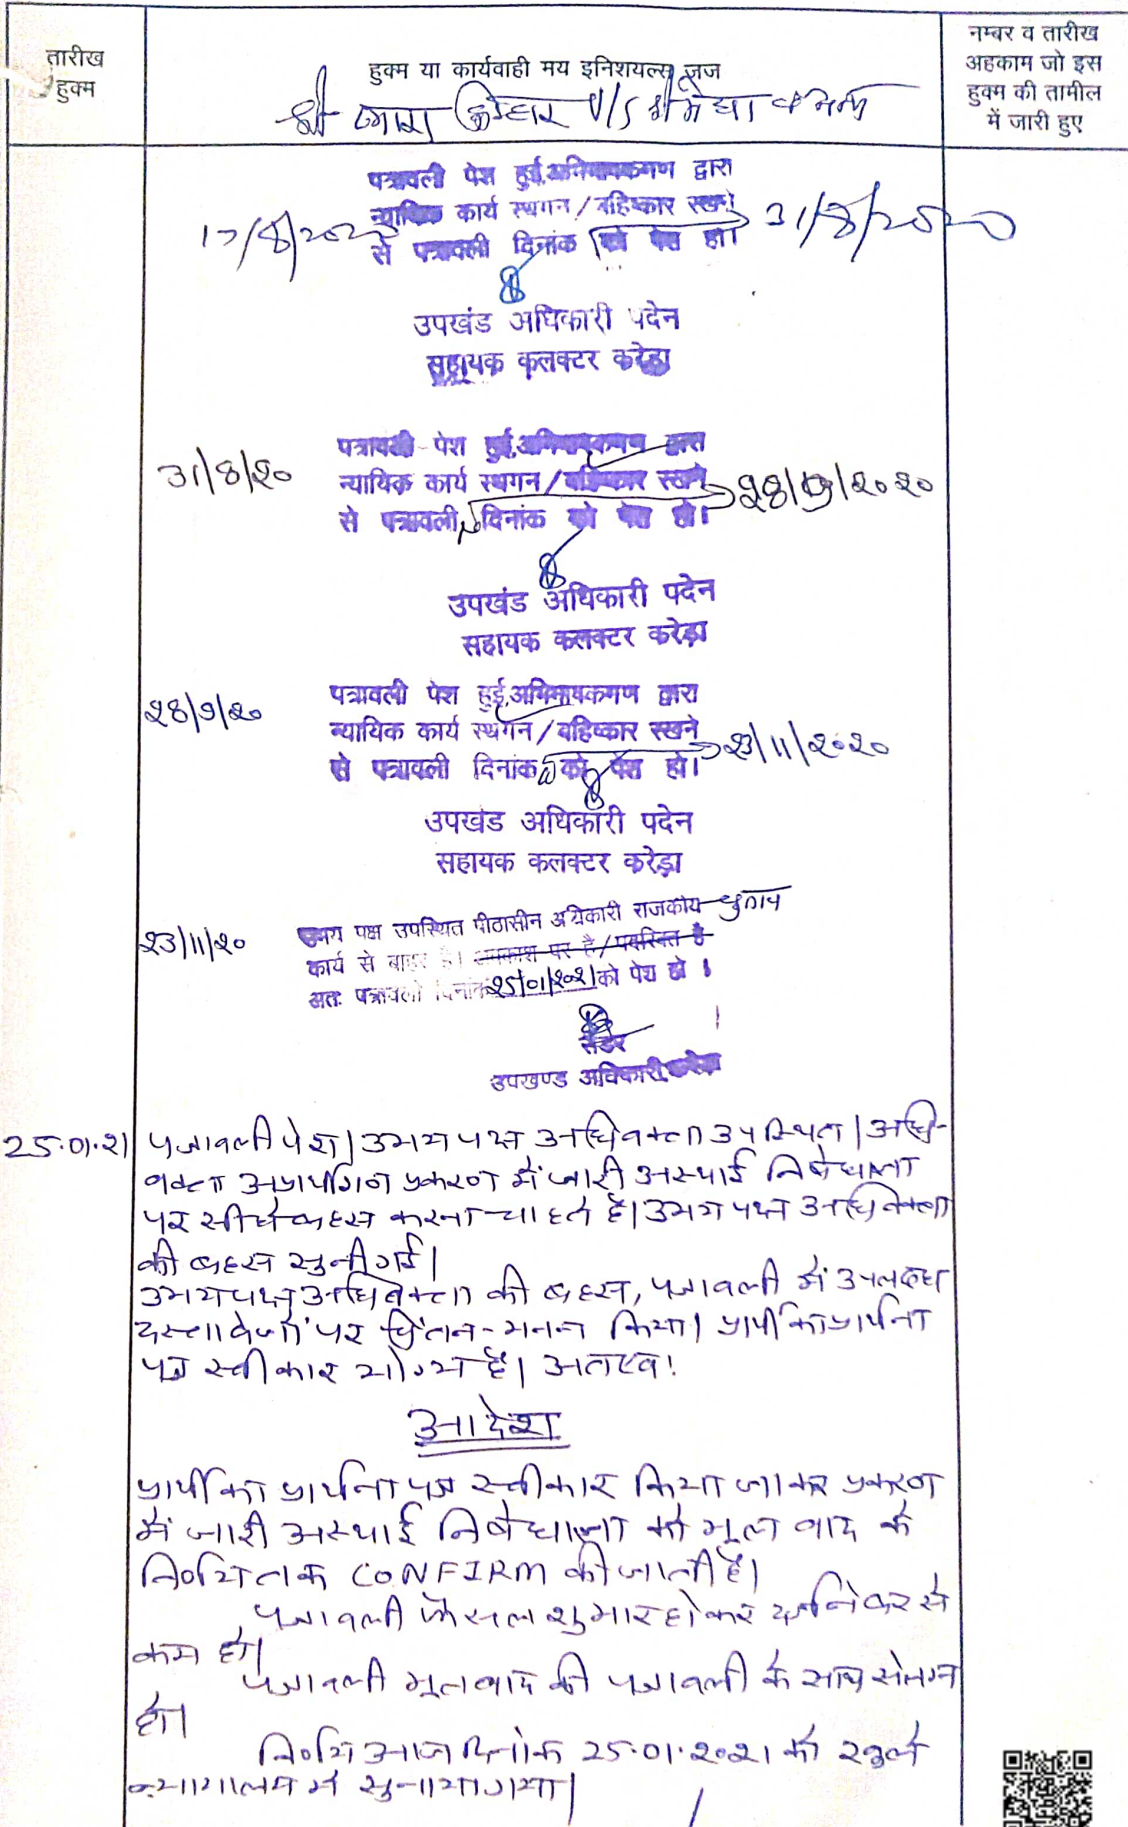 तारीख
हुक्म
हुक्म या कार्यवाही मय इनिशयल्स जज
नम्बर व तारीख
अहकाम जो इस
हुक्म की तामील
में जारी हुए
श्री V/S श्री
पत्रावली पेश हुई,अभिभाषकगण द्वारा
न्यायिक कार्य स्थगन/बहिष्कार रखने
17/8/2020 से पत्रावली दिनांक को पेश हो। 31/8/2020
उपखंड अधिकारी पदेन
सहायक कलक्टर करेड़ा
पत्रावली पेश हुई,अभिभाषकगण द्वारा
31/8/२० न्यायिक कार्य स्थगन/बहिष्कार रखने २8/9/२०२०
से पत्रावली दिनांक को पेश हो।
उपखंड अधिकारी पदेन
सहायक कलक्टर करेड़ा
२8/9/२० पत्रावली पेश हुई,अभिभाषकगण द्वारा
न्यायिक कार्य स्थगन/बहिष्कार रखने २3/11/२०२०
से पत्रावली दिनांक को पेश हो।
उपखंड अधिकारी पदेन
सहायक कलक्टर करेड़ा
२3/11/२० उभय पक्ष उपस्थित पीठासीन अधिकारी राजकीय चुनाव
कार्य से बाहर है। अवकाश पर है/
अतः पत्रावली दिनांक २5/01/२०२1 को पेश हो।
उपखण्ड अधिकारी, करेड़ा
25.01.21 पत्रावली पेश। उभय पक्ष अधिवक्ता उपस्थित। अधि-
वक्ता अप्रार्थीगण प्रकरण में जारी अस्थाई निषेधाज्ञा
पर सीधे बहस करना चाहते है। उभय पक्ष अधिवक्ता
की बहस सुनी गई।
उभय पक्ष अधिवक्ता की बहस, पत्रावली में उपलब्ध
दस्तावेजों पर चिंतन-मनन किया। प्रार्थी का प्रार्थना
पत्र स्वीकार योग्य है। अतएव!
आदेश
प्रार्थी का प्रार्थना पत्र स्वीकार किया जाकर प्रकरण
में जारी अस्थाई निषेधाज्ञा को मूल वाद के
निर्णय तक CONFIRM की जाती है।
पत्रावली फैसल शुमार होकर दर्ज नंबर से
कम हो।
पत्रावली मूल वाद की पत्रावली के साथ संलग्न
हो।
निर्णय आज दिनांक 25.01.२०२1 को खुले
न्यायालय में सुनाया गया।